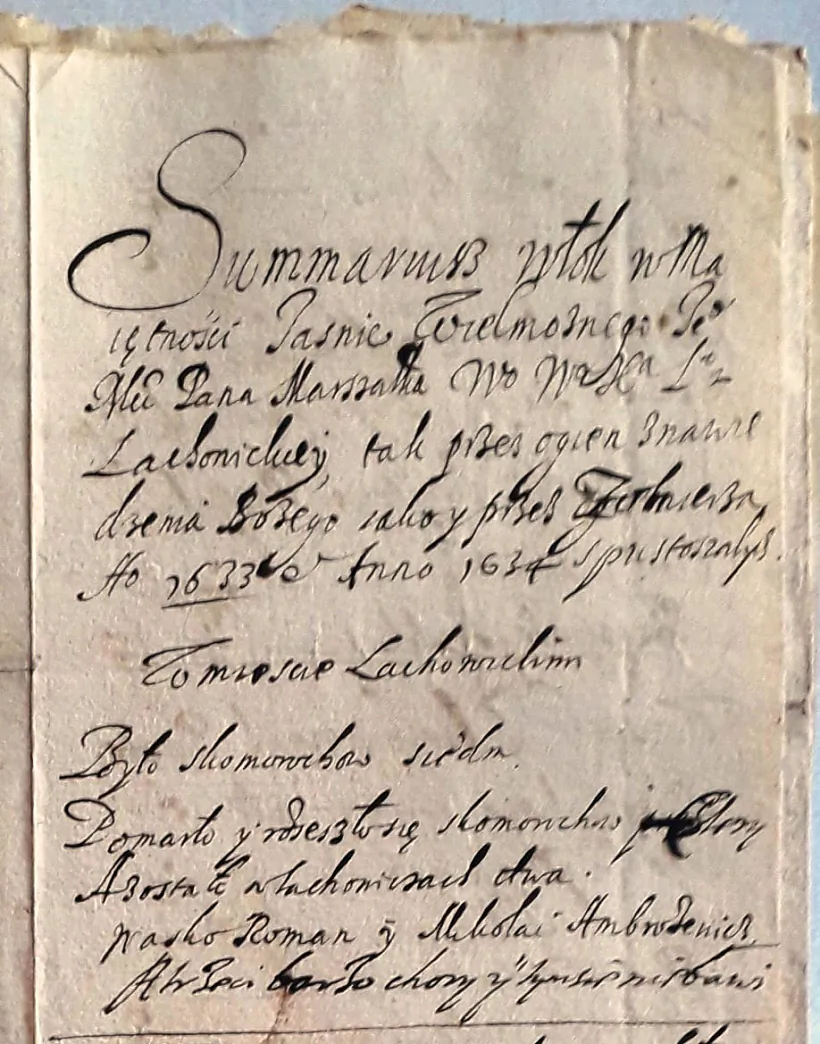 Summariusz włok w Ma
iętności Jasnie Wielmożnego Je°
Mći Pana Marszałka Wo
Lachowickiey, tak przez ogien z nawie
dzenia Bożego iako y przez Żołnierza
A° 1633 et Anno 1634 spustoszałych.
W miescie Lachowickim
Było skomorochow siedm.
Pomarło y rozeszło się skomorochow
A zostało w Lachowiczach dwa.
Wasko Roman ÿ Mikołai Ambrożewicz
A trzeci barzo chory ÿ tym sie nie bawi